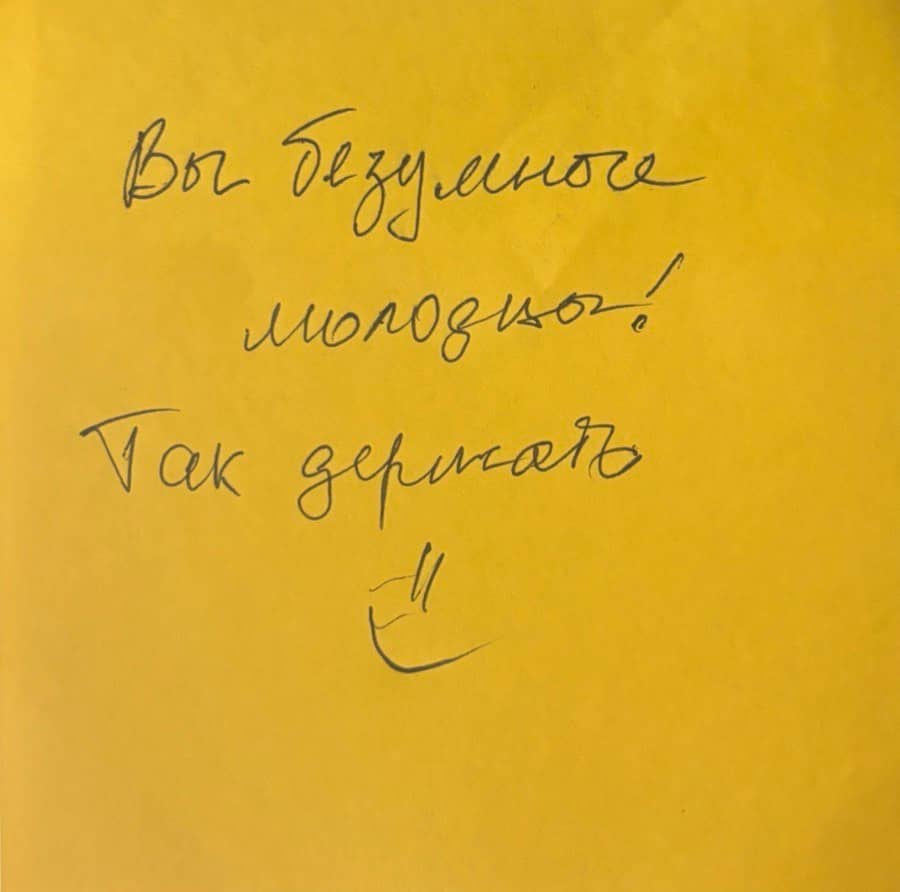 Вы безумные
молодцы!
Так держать